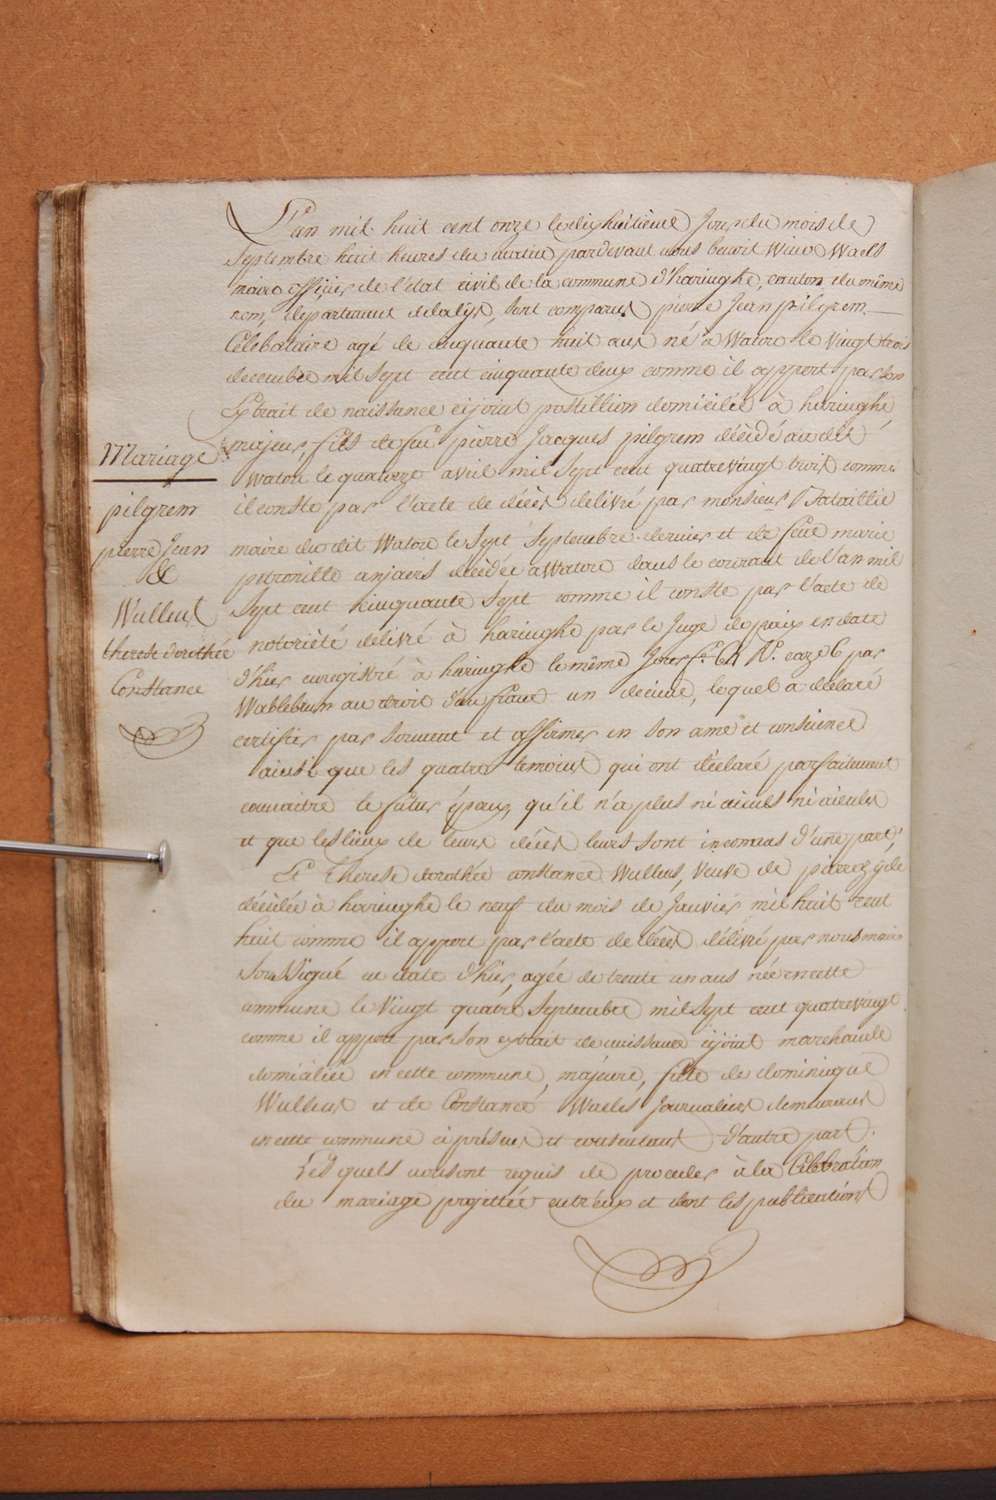 Mariage
pilgrem
pierre Jean
&
Wulleus
therese dorothée
Constance
L'an mil huit cent onze le dix huitieme Jour du mois de
Septembre huit heures du matin pardevant nous benoit Winoc Waels
maire officier de l'état civil de la commune d'haringhe, canton du même
nom, departement de la lijs, sont comparus pierre Jean pilgrem
Célebataire agé de cinquante huit ans né à Watou le vingt trois
decembre mil sept cent cinquante deux comme il apport par son
Extrait de naissance cijoint postillion domicilié à haringhe
majeur, fils de feu pierre Jacques pilgrem décédé au dit
Watou le quatorze avril mil sept cent quatrevingt trois comme
il conste par l'acte de décès delivré par monsieur Bataillie
maire du dit Watou le sept Septembre dernier et de feue marie
petronille decédée a Watou dans le courant de l'an mil
sept cent cinquante sept comme il conste par l'acte de
notorieté délivré à haringhe par le Juge de paix en date
d'hier enregistré à haringhe le même Jour f.º 61 R.º caze 6 par
au droit d'un franc un decime, lequel a déclaré
certifier par serment et affirmer en son ame et consience
ainsi que les quatre temoins qui ont déclaré parfaitement
connaitre le futur époux, qu'il n'a plus ni aieuls ni aieules
et que les lieux de leurs décès leurs sont inconnus d'une part,
Et Therese dorothée constance Wulleus, veuve de pierre
décédée à haringhe le neuf du mois de Janvier mil huit cent
huit comme il apport par l'acte de décès délivré par nous maire
Soussigné en date d'hier, agée de trente un ans née en cette
commune le Vingt quatre Septembre mil sept cent quatrevingt
comme il apport par son extrait de naissance cijoint marchande
domiciliée en cette commune, majeure, fille de dominique
Wulleus et de Constance Waeles Journaliers demeurans
en cette commune ci présens et consentans d'autre part.
Les quels nous ont requis de proceder à la Célébration
du mariage projetté entre eux et dont les publications